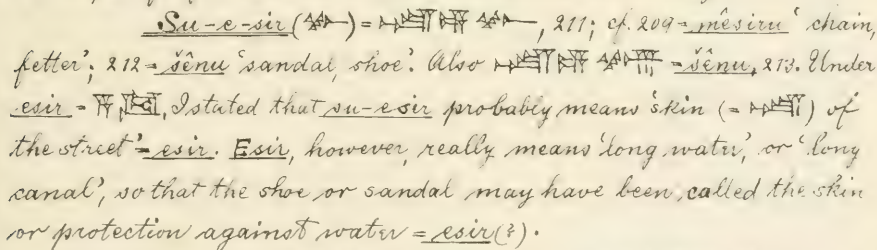 Su-e-sir () = , 211; cf. 209 = mêsiru 'chain,
fetter'; 212 = šênu 'sandal, shoe'. Also = šênu, 213. Under
esir = , I stated that su-esir probably means 'skin (= ) of
the street' = esir. Esir, however, really means 'long water', or 'long
canal', so that the shoe or sandal may have been called the skin
or protection against water = esir(?).